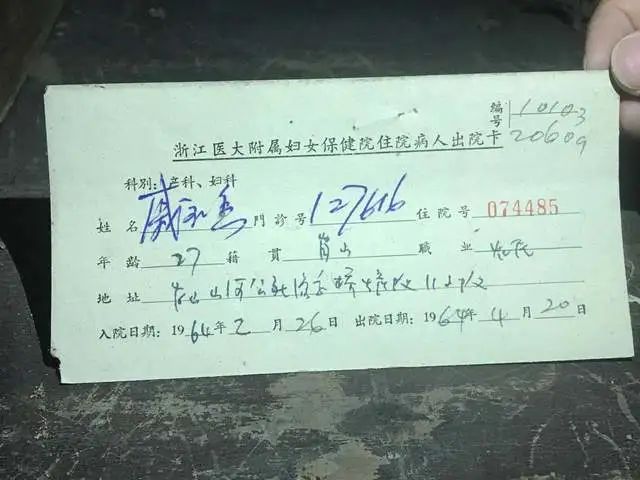 编号 10103
20609
浙江医大附属妇女保健院住院病人出院卡
科别：产科、妇科
姓名 戚 香 門診号 127616 住院号 074485
年龄 27 籍贯 肖山 职业 农民
地址 肖山山河公社
入院日期：1964年2月26日 出院日期：1964年4月20日